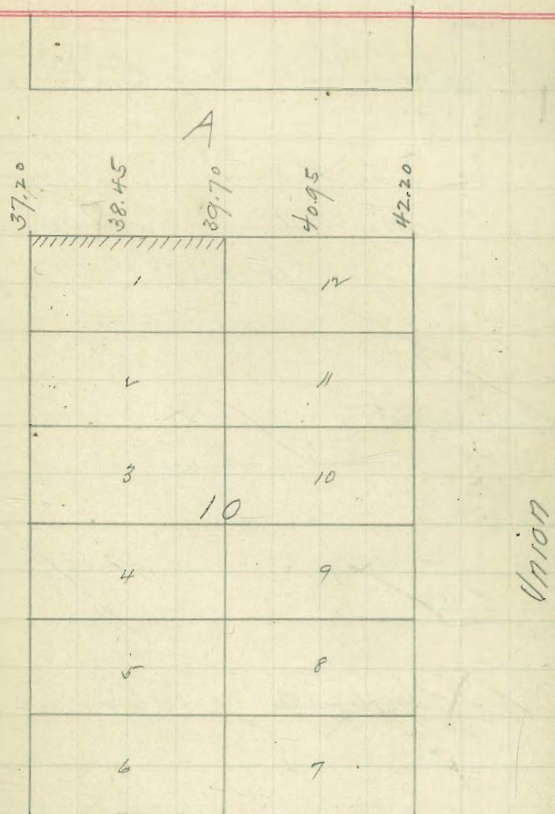 A
37.20 38.45 39.70 40.95 42.20
1 12
2 11
3 10
10
4 9
Union
5 8
6 7